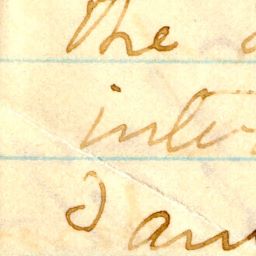 The
inte
I am